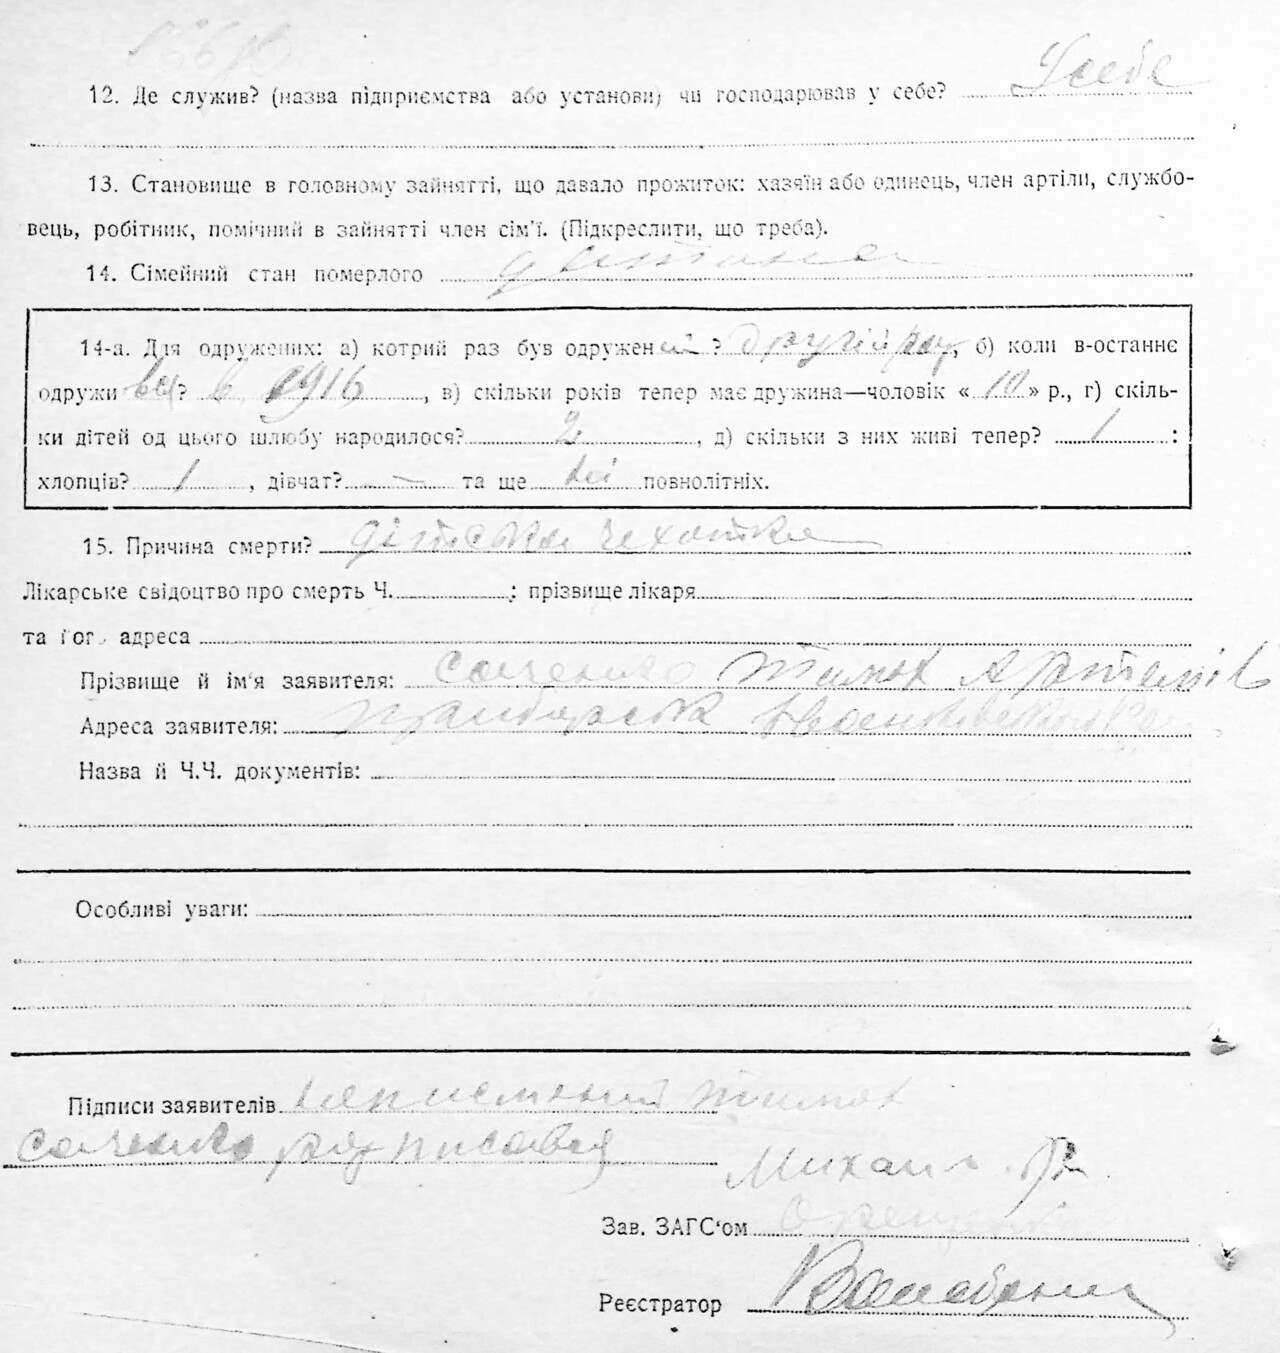 12. Де служив? (назва підприємства або установи) чи господарював у себе? У себе
13. Становище в головному зайнятті, що давало прожиток: хазяїн або одинець, член артіли, службо-
вець, робітник, помічний в зайнятті член сім'ї. (Підкреслити, що треба).
14. Сімейний стан померлого дитина
14-а. Для одружених: а) котрий раз був одружений? другій раз, б) коли в-останнє
одружився? в 1916, в) скільки років тепер має дружина—чоловік « 10 » р., г) скіль-
ки дітей од цього шлюбу народилося? 2, д) скільки з них живі тепер? 1 :
хлопців? 1, дівчат? — та ще повнолітніх.
15. Причина смерти? дітська чехотка
Лікарське свідоцтво про смерть Ч. ; прізвище лікаря
та його адреса
Прізвище й ім'я заявителя: Саченко Тимох Артемів
Адреса заявителя:
Назва й Ч.Ч. документів:
Особливі уваги:
Підписи заявителів неписменний Тимох
Саченко росписався
Михаил
Зав. ЗАГС‘ом
Реєстратор